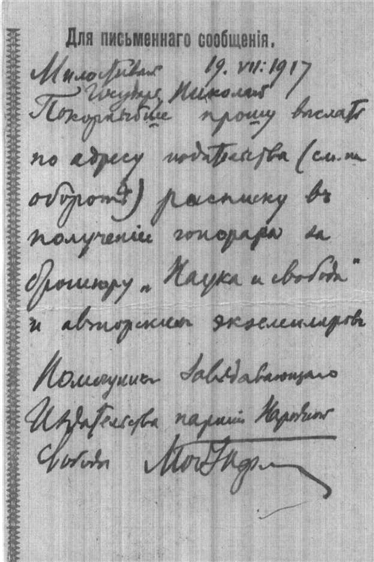 Для письменнаго сообщенія.
19. VII. 1917
Николай
Покорнѣйше прошу выслать
по адресу издательства (см. на
оборотѣ) расписку въ
полученіи гонорара за
брошюру „Наука и свобода"
и авторскихъ экземпляровъ
Помощникъ Завѣдывающаго
Издательства партіи Народной
Свободы